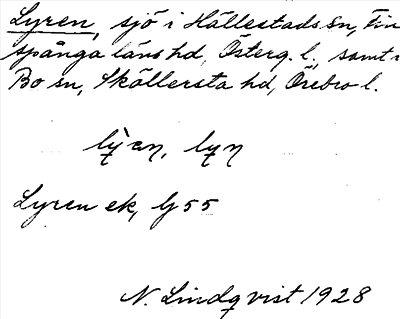 Lyren, sjö i Hällestads sn, Fin
spånga läns hd, Österg. l., samt i
Bo sn, Sköllersta hd, Örebro l.
Lyren ek, bl 55
N. Lindqvist 1928